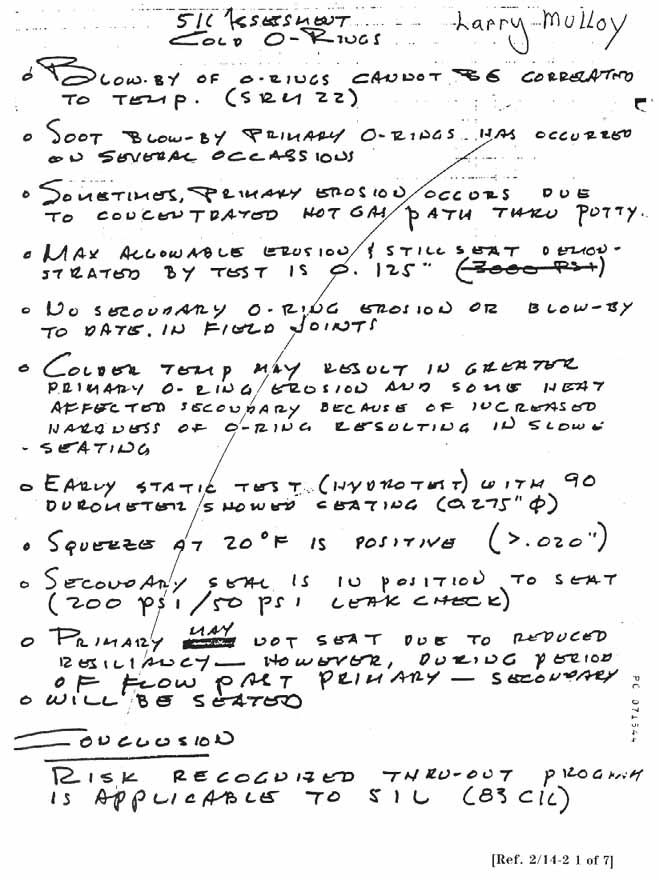 51L ASSESSMENT
COLD O-RINGS
Larry Mulloy
o BLOW-BY OF O-RINGS CANNOT BE CORRELATED
TO TEMP. (SRM 22)
o SOOT BLOW-BY PRIMARY O-RINGS HAS OCCURRED
ON SEVERAL OCCASSIONS
o SOMETIMES, PRIMARY EROSION OCCURS DUE
TO CONCENTRATED HOT GAS PATH THRU PUTTY.
o MAX ALLOWABLE EROSION & STILL SEAT DEMON-
STRATED BY TEST IS 0.125" (3000 PSI)
o NO SECONDARY O-RING EROSION OR BLOW-BY
TO DATE. IN FIELD JOINTS
o COLDER TEMP MAY RESULT IN GREATER
PRIMARY O-RING EROSION AND SOME HEAT
AFFECTED SECONDARY BECAUSE OF INCREASED
HARDNESS OF O-RING RESULTING IN SLOW
- SEATING
o EARLY STATIC TEST (HYDROTEST) WITH 90
DUROMETER SHOWED SEATING (0.275" φ)
o SQUEEZE AT 20°F IS POSITIVE (>.020")
o SECONDARY SEAL IS IN POSITION TO SEAT
(200 PSI/50 PSI LEAK CHECK)
o PRIMARY MAY NOT SEAT DUE TO REDUCED
RESILIANCY — HOWEVER, DURING PERIOD
OF FLOW PAST PRIMARY — SECONDARY
o WILL BE SEATED
CONCLUSION
RISK RECOGNIZED THRU-OUT PROGRAM
IS APPLICABLE TO 51L (83 CIL)
PC 071544
[Ref. 2/14-2 1 of 7]